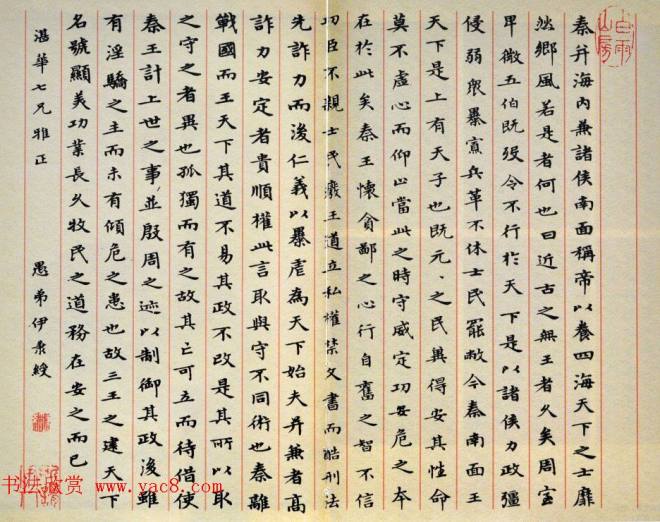 秦并海內兼諸侯南面稱帝以養四海天下之士靡
然鄉風若是者何也曰近古之無王者久矣周室
卑微五伯既歿令不行於天下是以諸侯力政彊
侵弱眾暴寡兵革不休士民罷敝今秦南面王
天下是上有天子也既元〻之民冀得安其性命
莫不虛心而仰上當此之時守威定功安危之本
在於此矣秦王懷貪鄙之心行自奮之智不信
功臣不親士民廢王道立私權禁文書而酷刑法
先詐力而後仁義以暴虐為天下始夫并兼者高
詐力安定者貴順權此言取與守不同術也秦離
戰國而王天下其道不易其政不改是其所以取
之守之者異也孤獨而有之故其亡可立而待借使
秦王計上世之事並殷周之迹以制御其政後雖
有淫驕之主而未有傾危之患也故三王之建天下
名號顯美功業長久牧民之道務在安之而已
湛華七兄雅正 愚弟伊秉綬
白雨山房
书法欣赏 www.yac8.com